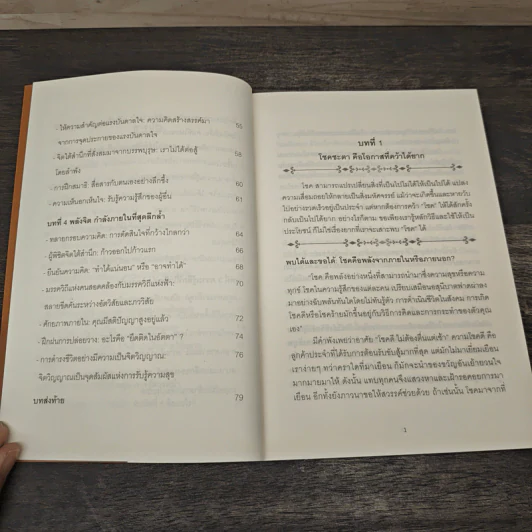 - ให้ความสำคัญต่อแรงบันดาลใจ: ความคิดสร้างสรรค์มา 55
จากการจุดประกายของแรงบันดาลใจ
- จิตใต้สำนึกที่สั่งสมมาจากบรรพบุรุษ: เราไม่ได้ต่อสู้ 58
โดยลำพัง
- การฝึกสมาธิ: สื่อสารกับตนเองอย่างลึกซึ้ง 60
- ความเห็นอกเห็นใจ: รับรู้ความรู้สึกของผู้อื่น 61
บทที่ 4 พลังจิต กำลังภายในที่สุดลึกล้ำ 64
- หลายกรอบความคิด: การตัดสินใจที่กว้างไกลกว่า 64
- ผู้พิชิตจิตใต้สำนึก: ก้าวออกไปก้าวแรก 66
- ยืนยันความคิด "ทำได้แน่นอน" หรือ "อาจทำได้" 68
- มรรควิถีแห่งตนสอดคล้องกับมรรควิถีแห่งฟ้า: 70
สลายขีดคั่นระหว่างอัตวิสัยและภาววิสัย
- ศักยภาพภายใน: คุณมีสติปัญญาสูงอยู่แล้ว 72
- ฝึกฝนการปล่อยวาง: อะไรคือ "ยึดติดในอัตตา" ? 74
- การดำรงชีวิตอย่างมีความเป็นจิตวิญญาณ: 76
จิตวิญญาณเป็นจุดสัมผัสแห่งการรับรู้ความสุข
บทส่งท้าย 79
บทที่ 1
โชคชะตา คือโอกาสที่คว้าได้ยาก
โชค สามารถแปรเปลี่ยนสิ่งที่เป็นไปไม่ได้ให้เป็นไปได้ แปลง
ความเสื่อมถอยให้กลายเป็นสิ่งมหัศจรรย์ แม้ว่าจะเกิดขึ้นและหายวับ
ไปอย่างรวดเร็วอยู่เป็นประจำ แต่หากต้องการคว้า "โชค" ให้ได้สักครั้ง
กลับเป็นไปได้ยาก อย่างไรก็ตาม ขอเพียงเรารู้หลักวิธีและใช้ให้เป็น
ประโยชน์ ก็ไม่ใช่เรื่องยากที่เราจะเสาะพบ "โชค" ได้
พบได้และขอได้: โชคคือพลังจากภายในหรือภายนอก?
"โชค คือพลังอย่างหนึ่งที่สามารถนำมาซึ่งความสุขหรือความ
ทุกข์ โชคในความรู้สึกของแต่ละคน เปรียบเสมือนอสุนีบาตฟาดลง
มาอย่างฉับพลันทันใดโดยไม่ทันรู้ตัว การดำเนินชีวิตในสังคม การเกิด
โชคดีหรือโชคร้ายมักขึ้นอยู่กับวิธีการคิดและการกระทำของตัวคุณ
เอง"
มีคำพังเพยว่าอาศัย "โชคดี ไม่ต้องตื่นแต่เช้า" ความโชคดี คือ
ลูกค้าประจำที่ได้รับการต้อนรับขับสู้มากที่สุด แต่มักไม่มาเยี่ยมเยือน
เราง่ายๆ ทว่าคราใดที่มาเยือน ก็มักจะนำของขวัญอันเย้ายวนใจ
มากมายมาให้ ดังนั้น แทบทุกคนจึงแสวงหาและเฝ้ารอคอยการมา
เยือน อีกทั้งยังภาวนาขอให้สวรรค์ช่วยด้วย ถ้าเช่นนั้น โชคมาจากที่
1